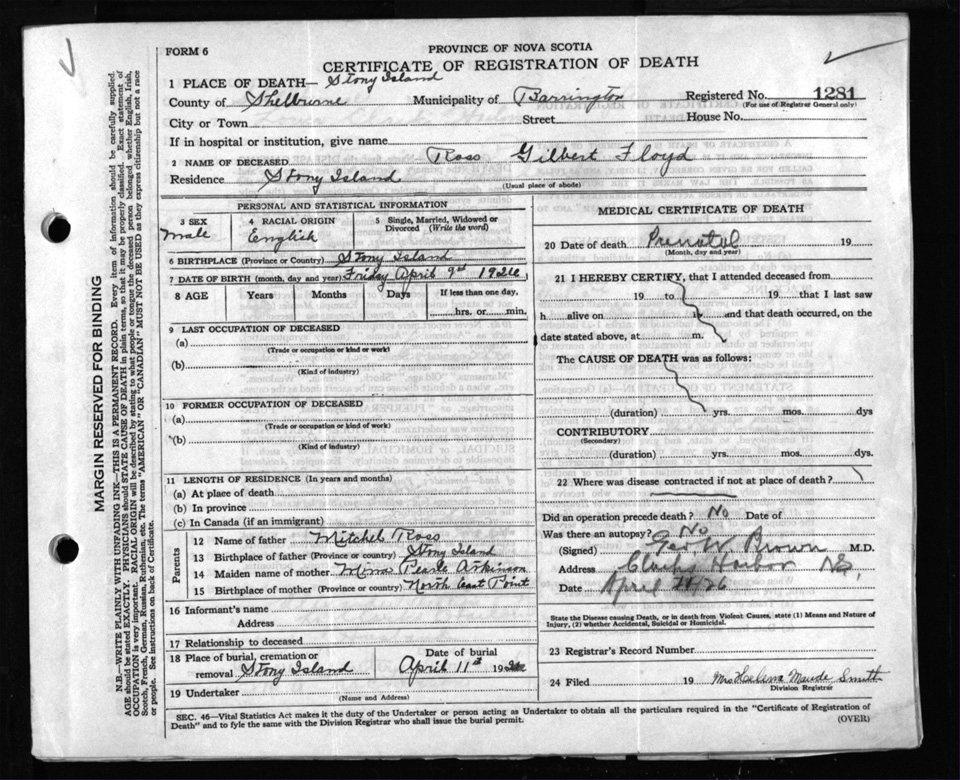 FORM 6
PROVINCE OF NOVA SCOTIA
CERTIFICATE OF REGISTRATION OF DEATH
1 PLACE OF DEATH— Stony Island
County of Shelburne Municipality of Barrington Registered No. 1281
(For use of Registrar General only)
City or Town Street House No.
If in hospital or institution, give name
2 NAME OF DECEASED Ross Gilbert Floyd
Residence Stony Island
(Usual place of abode)
PERSONAL AND STATISTICAL INFORMATION
3 SEX Male
4 RACIAL ORIGIN English
5 Single, Married, Widowed or Divorced (Write the word)
6 BIRTHPLACE (Province or Country) Stony Island
7 DATE OF BIRTH (month, day and year) Friday April 9th 1926
8 AGE Years Months Days If less than one day, hrs. or min.
9 LAST OCCUPATION OF DECEASED
(a)
(Trade or occupation or kind or work)
(b)
(Kind of industry)
10 FORMER OCCUPATION OF DECEASED
(a)
(Trade or occupation or kind of work)
(b)
(Kind of industry)
11 LENGTH OF RESIDENCE (In years and months)
(a) At place of death
(b) In province
(c) In Canada (if an immigrant)
Parents
12 Name of father Mitchel Ross
13 Birthplace of father (Province or country) Stony Island
14 Maiden name of mother Mina Pearle Atkinson
15 Birthplace of mother (Province or country) North East Point
16 Informant's name
Address
17 Relationship to deceased
18 Place of burial, cremation or removal Stony Island
Date of burial
April 11th 1926
19 Undertaker
(Name and Address)
MEDICAL CERTIFICATE OF DEATH
20 Date of death Prenatal 19
(Month, day and year)
21 I HEREBY CERTIFY, that I attended deceased from
19 to 19 that I last saw
h alive on and that death occurred, on the
date stated above, at m.
The CAUSE OF DEATH was as follows:
(duration) yrs. mos. dys
CONTRIBUTORY
(Secondary)
(duration) yrs. mos. dys.
22 Where was disease contracted if not at place of death?
Did an operation precede death? No Date of
Was there an autopsy? No
(Signed) Geo W. Brown M.D.
Address Clarks Harbor N.S.
Date April 21/26
State the Disease causing Death, or in death from Violent Causes, state (1) Means and Nature of
Injury, (2) whether Accidental, Suicidal or Homicidal.
23 Registrar's Record Number
24 Filed 19 Mrs Maude Smith
Division Registrar
SEC. 46—Vital Statistics Act makes it the duty of the Undertaker or person acting as Undertaker to obtain all the particulars required in the "Certificate of Registration of
Death" and to fyle the same with the Division Registrar who shall issue the burial permit.
(OVER)
MARGIN RESERVED FOR BINDING
N.B.—WRITE PLAINLY WITH UNFADING INK—THIS IS A PERMANENT RECORD. Every item of information should be carefully supplied.
AGE should be stated EXACTLY. PHYSICIANS should STATE CAUSE OF DEATH in plain terms, so that it may be properly classified. Exact statement of
OCCUPATION is very important. RACIAL ORIGIN will be described by stating to what people or tongue the deceased person belonged whether English, Irish,
Scotch, French, German, Russian, Ruthenian, etc. The terms "AMERICAN" OR "CANADIAN" MUST NOT BE USED as they express citizenship but not a race
or people. See instructions on back of Certificate.